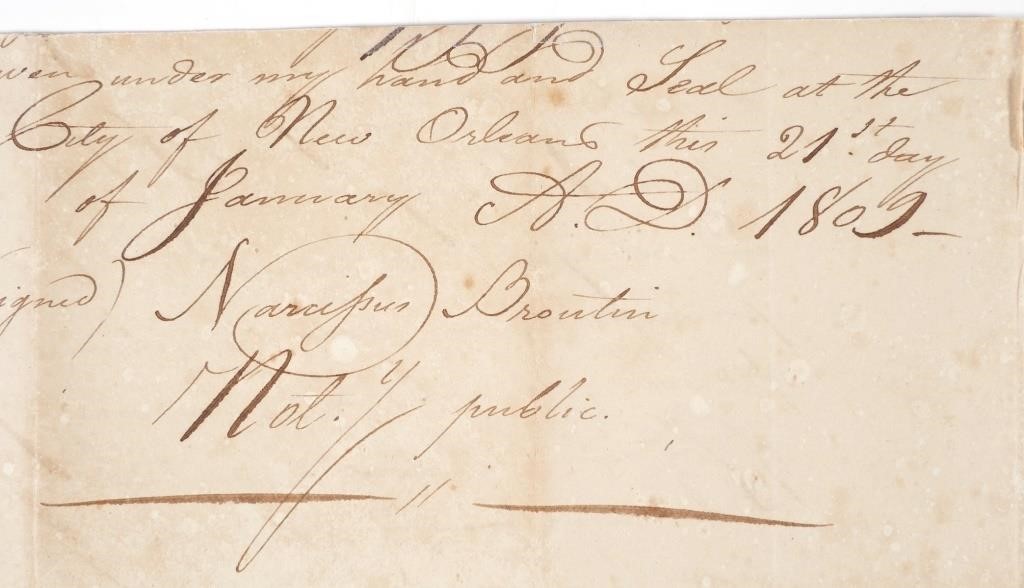 under my hand and Seal at the
City of New Orleans this 21.st day
of January A.D. 1809_
Narcissus Broutin
Not.y public.